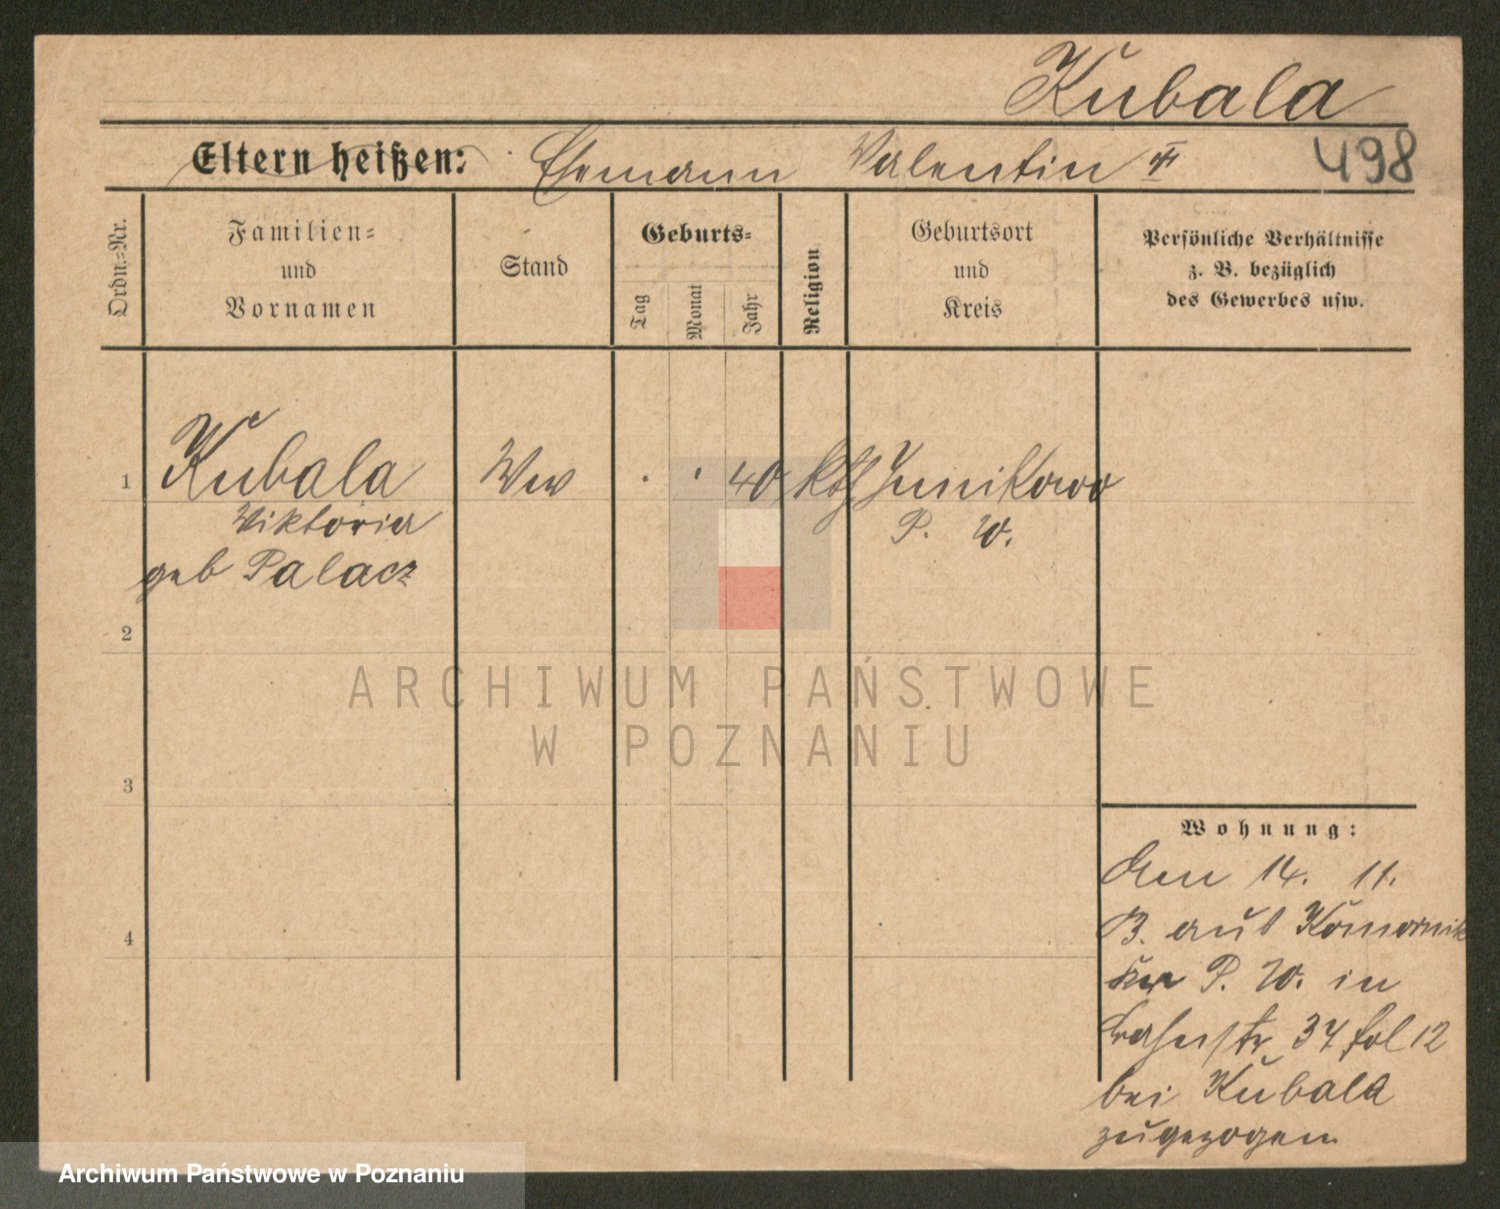 Kubala
Eltern heißen: Ehemann Valentin
498
Ordn.-Nr.
Familien-
und
Vornamen
Stand
Geburts-
Tag
Monat
Jahr
Religion
Geburtsort
und
Kreis
Persönliche Verhältnisse
z. B. bezüglich
des Gewerbes usw.
1 Kubala Ww . . 40 kth Junikowo
Viktoria P. W.
geb Palacz
2
3
4
Wohnung:
Am 14. 11.
aus Komornik
P. W. in
37 fol 12
bei Kubala
zugezogen
ARCHIWUM PAŃSTWOWE
W POZNANIU
Archiwum Państwowe w Poznaniu